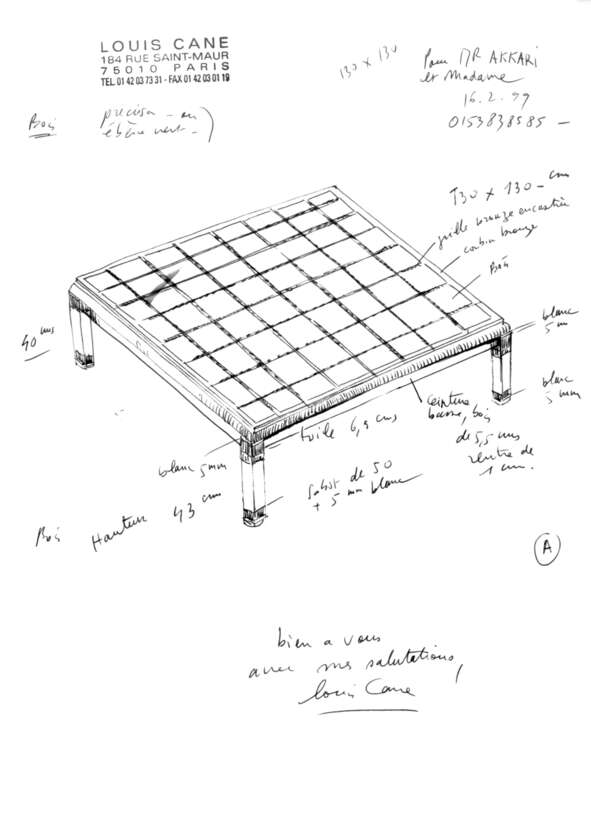 LOUIS CANE
184 RUE SAINT-MAUR
75010 PARIS
TEL 01 42 03 73 31 - FAX 01 42 03 01 19
130 x 130
Pour MR AKKARI
et Madame
16.2.99
0153838585 -
Bois
ébène vert -
130 x 130 - cms
grille bronze encastrée
bronze
Bois
40 cms
blanc
5 m
blanc
5 mm
ceinture
basse, bois
de 5,5 cms
rentre de
1 cm.
toile 6,5 cms
blanc 5 mm
Sabot de 50
+ 5 mm blanc
Bois
Hauteur 43 cms
A
bien a vous
avec mes salutations,
Louis Cane